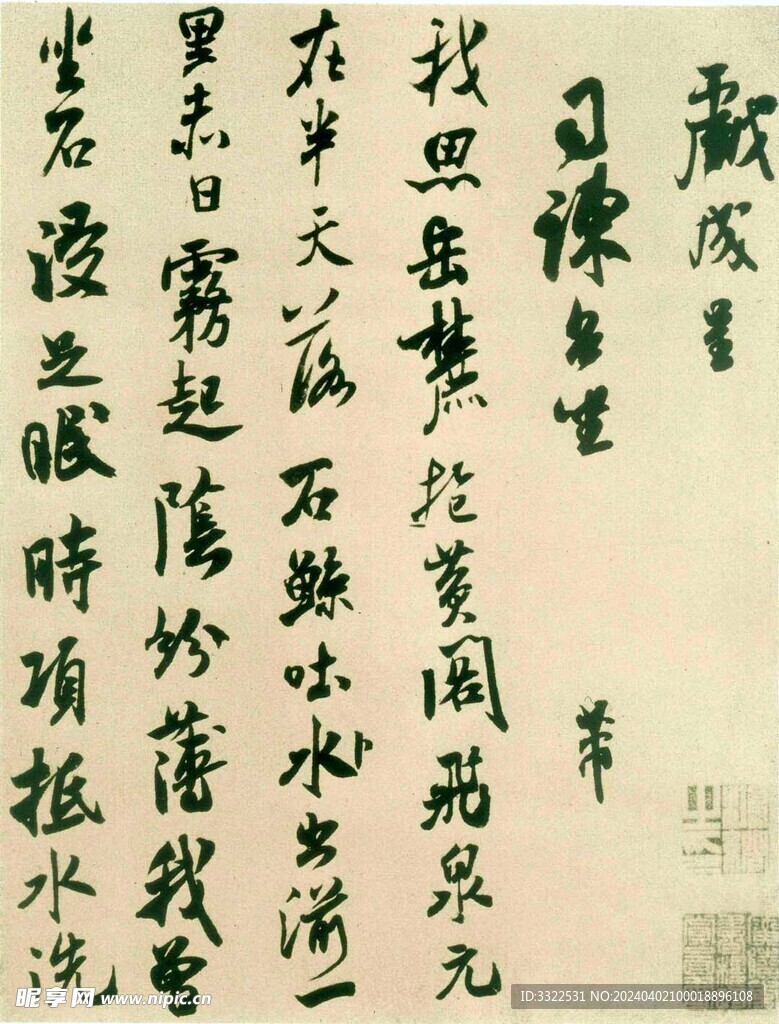 戲成呈
司諫台坐 芾
我思岳麓抱黃閣飛泉元
在半天落石鯨吐水出湔一
里赤日霧起陰紛薄我曾
坐石浸足眠時項抵水洗
昵享网 www.nipic.cn
ID:3322531 NO:20240402100018896108